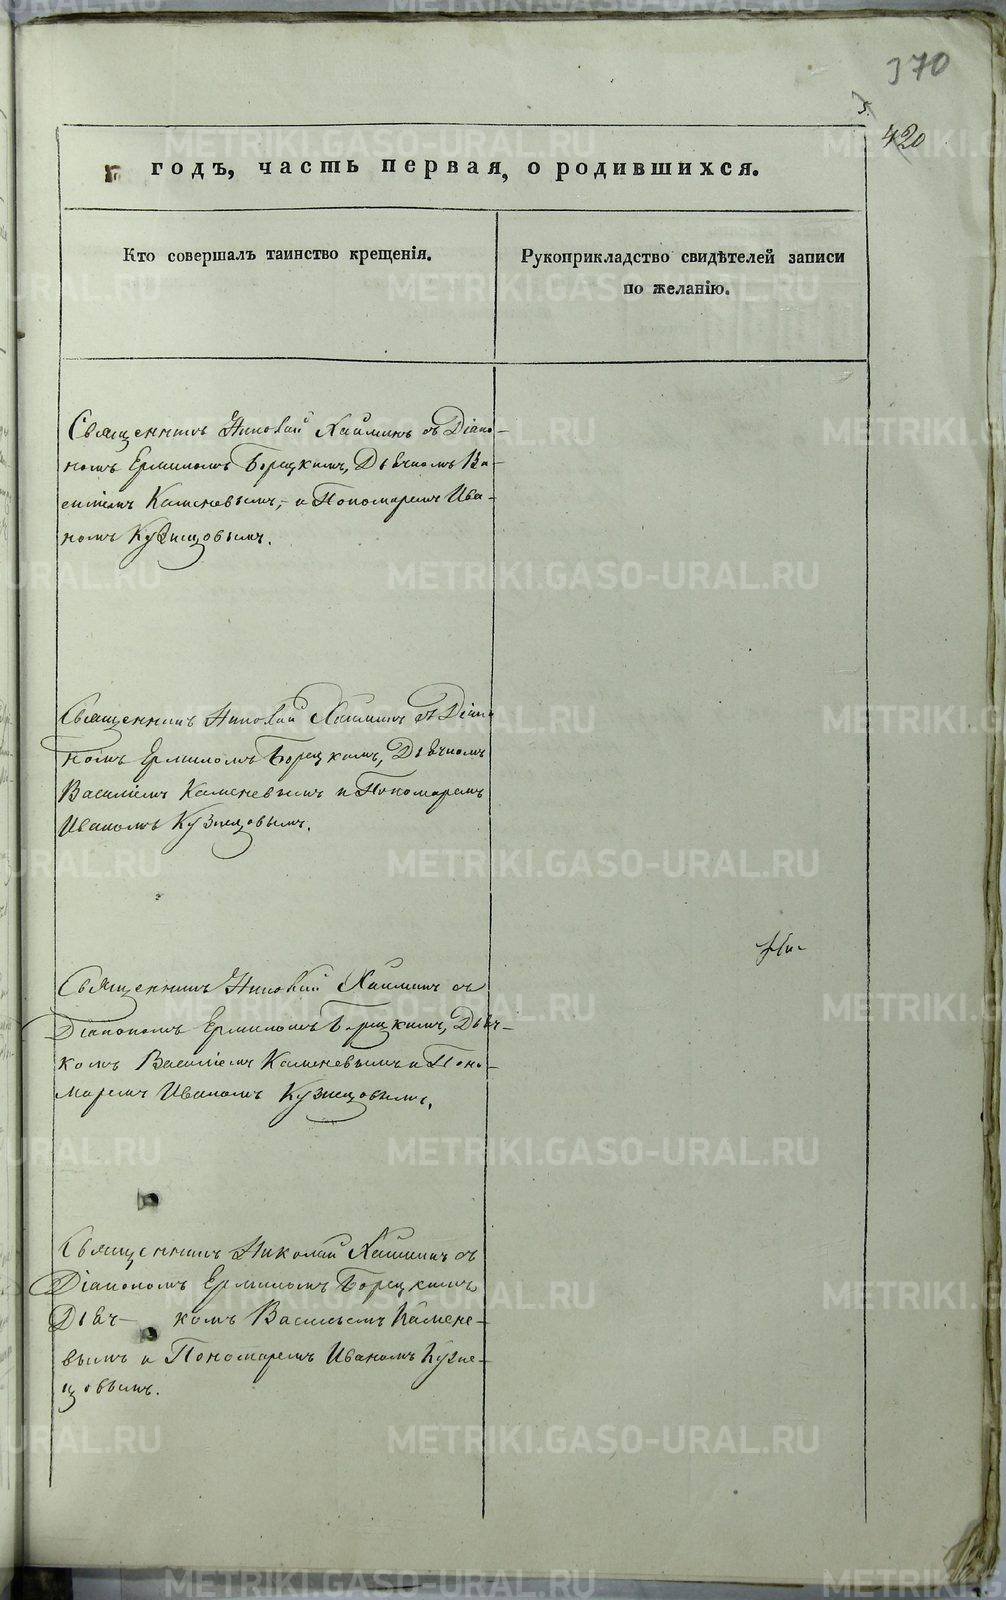 370
5.
420
годъ, часть первая, о родившихся.
Кто совершалъ таинство крещенія.
Рукоприкладство свидѣтелей записи
по желанію.
Священникъ Николай Хайминъ съ Діако-
номъ Ермиломъ Борецкимъ, Дьячкомъ Ва-
силіемъ Каменевымъ, и Пономаремъ Ива-
номъ Кузнецовымъ.
Священникъ Николай Хайминъ съ Діако
номъ Ермиломъ Борецкимъ, Дьячкомъ
Василіемъ Каменевымъ и Пономаремъ
Иваномъ Кузнецовымъ.
Священникъ Николай Хайминъ съ
Діакономъ Ермиломъ Борецкимъ, Дьяч-
комъ Василіемъ Каменевымъ и Поно-
маремъ Иваномъ Кузнецовымъ.
Священникъ Николай Хайминъ съ
Діакономъ Ермиломъ Борецкимъ
Дьяч- комъ Васильемъ Камене-
вымъ и Пономаремъ Иваномъ Кузне-
цовымъ.
METRIKI.GASO-URAL.RU